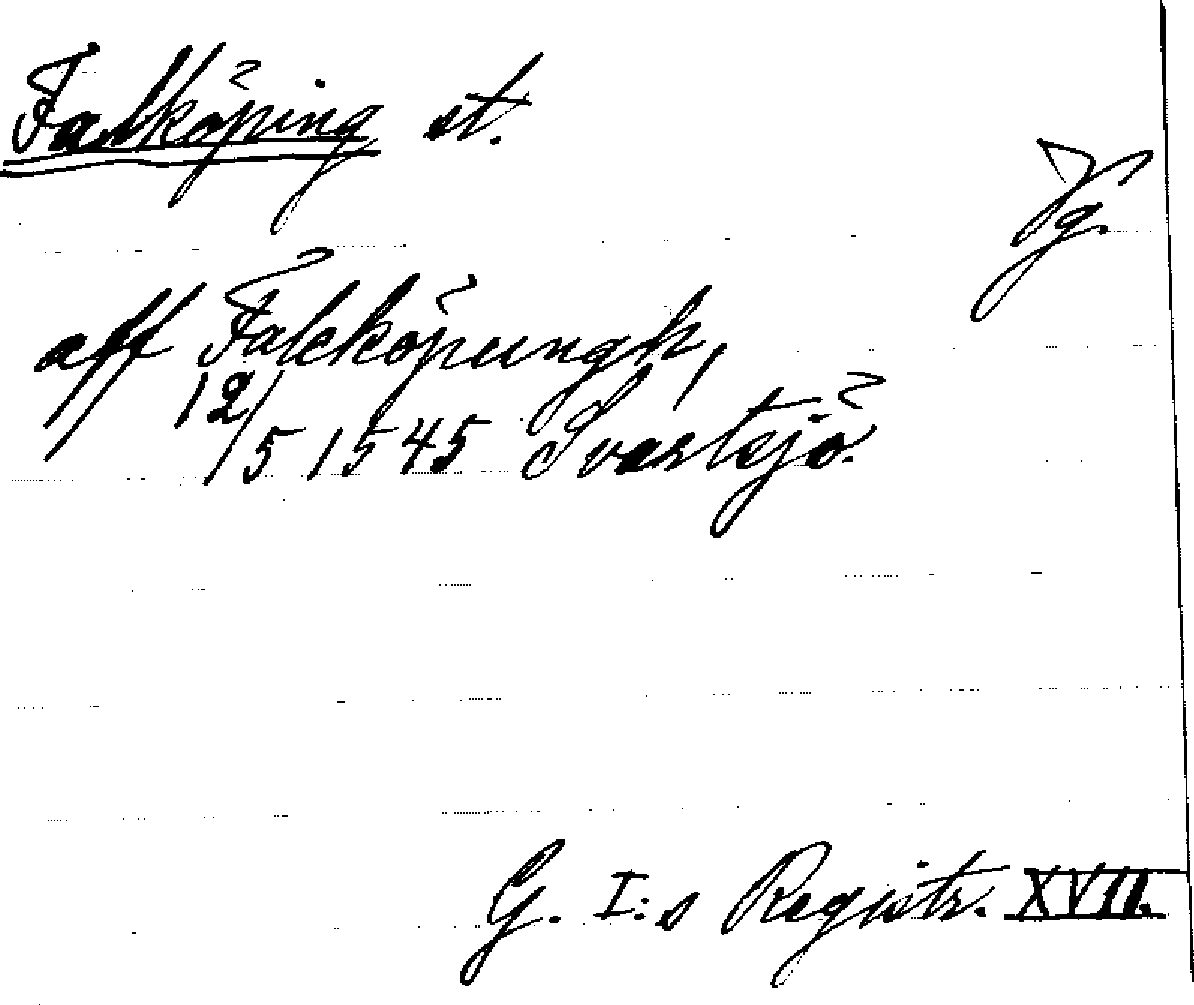 Falköping st.
Vg.
aff Falcköpungh,
12/5 1545 Svartsjö.
G. I:s Registr. XVII.